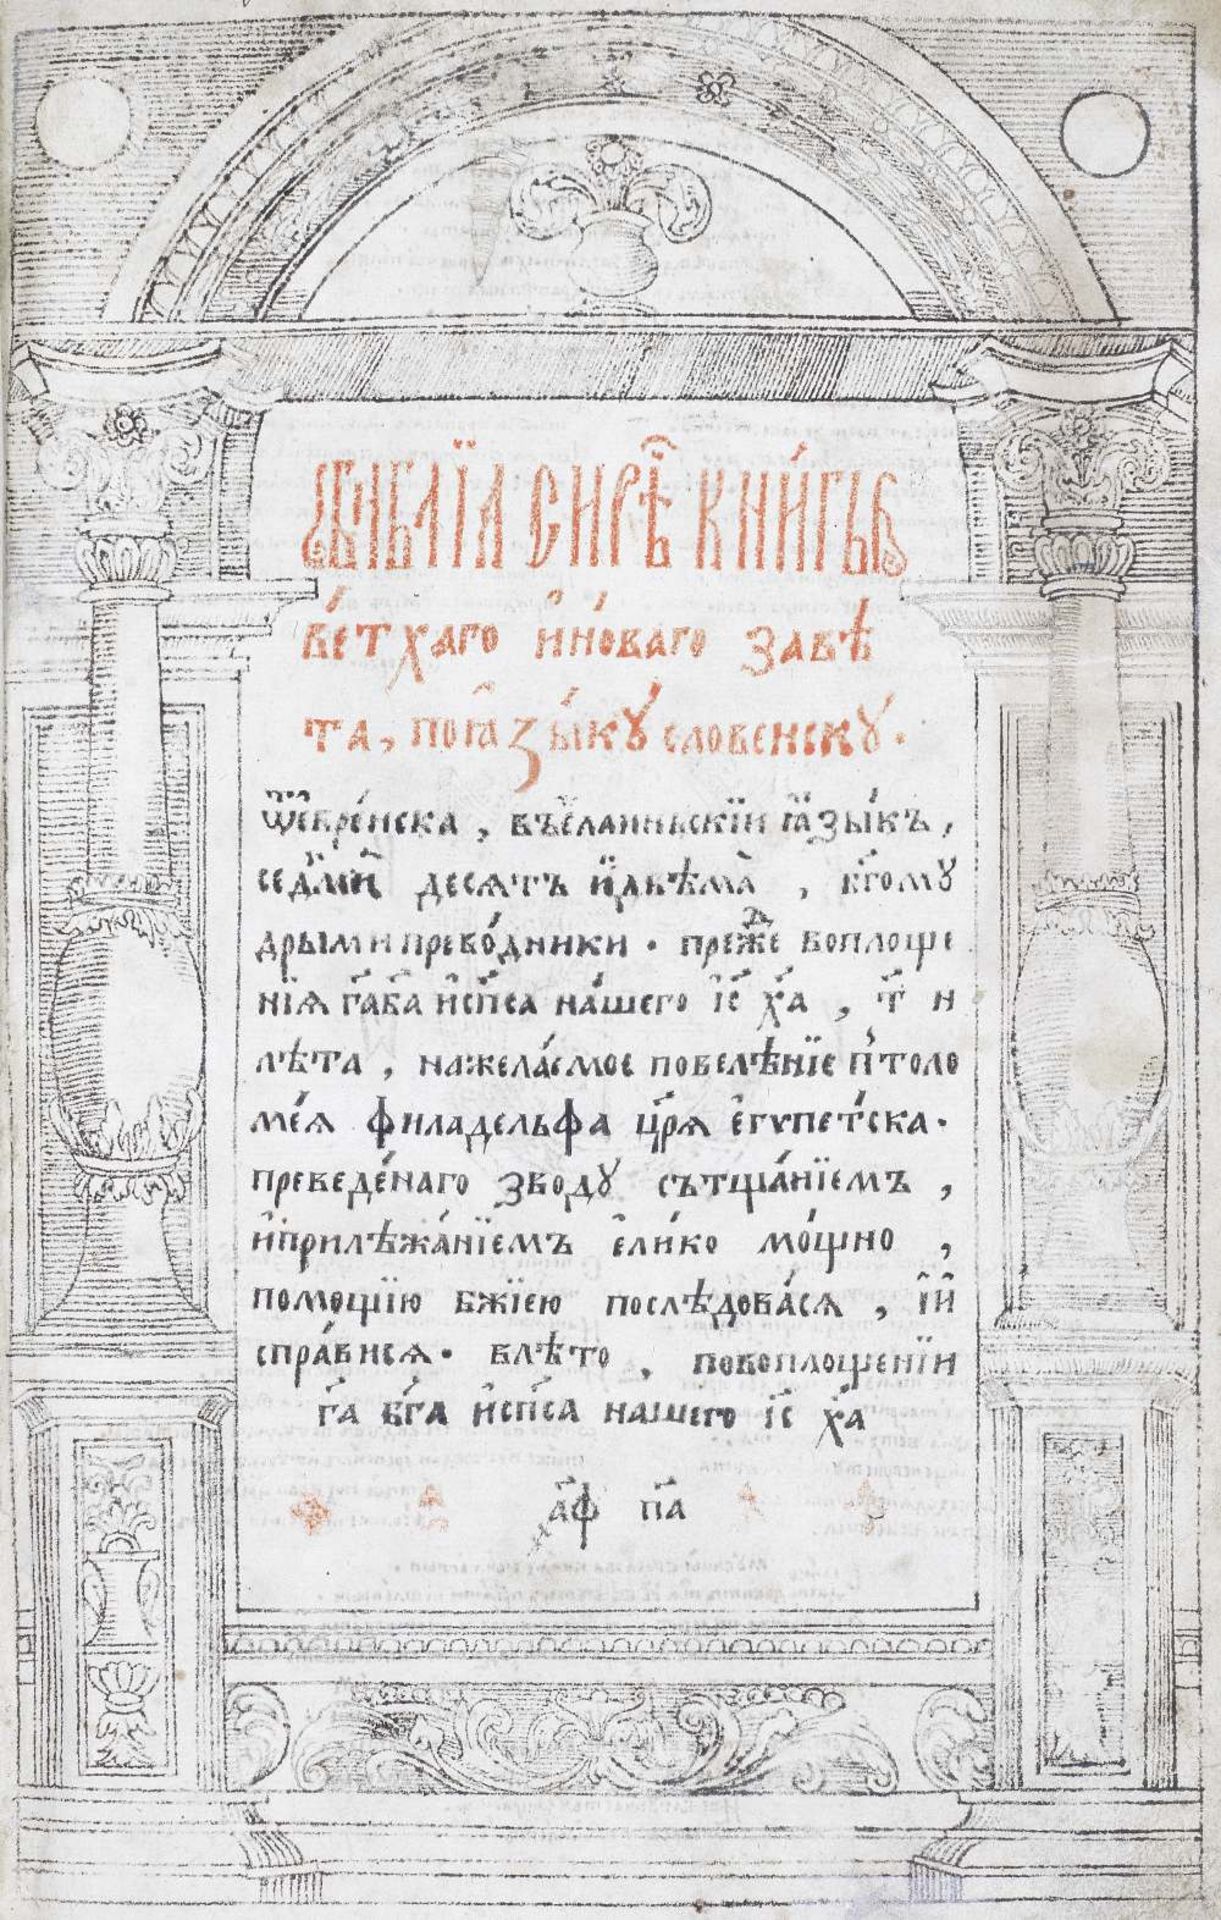 Библїа сирѣ̑ч кни́гы
ве́тхаго и҆но́ваго завѣ
та, поꙗ҆зы́кꙋ словенскꙋ.
ѿе҆вре́йска, въе҆ллиньскїи ꙗ҆зы́къ,
седмиⷨ десѧтъ и҆двѣма , бг҃омꙋ
дрыми прево́дники · преⷤⷣе воплоще
нїѧ гⷭ҇а бг҃а и҆сп҃са на́шего і҆с҃ х҃а , т҃ н
лѣта , нажела́емое повелѣ́нїе пⷮтоло
ме́ѧ филаделфа цр҃ѧ е҆гѵпе́тска·
преведе́наго зводꙋ сътща́нїемъ ,
и҆прилѣжа́нїемъ е҆ли́ко мо́щно ,
помощїю бж҃їею послѣдова́сѧ , і҆и҆
спра́висѧ· влѣто , повоплощенїи
гⷭ҇а бг҃а и҆сп҃са нашего і҆с҃ х҃а
а҂ф҃ п҃а